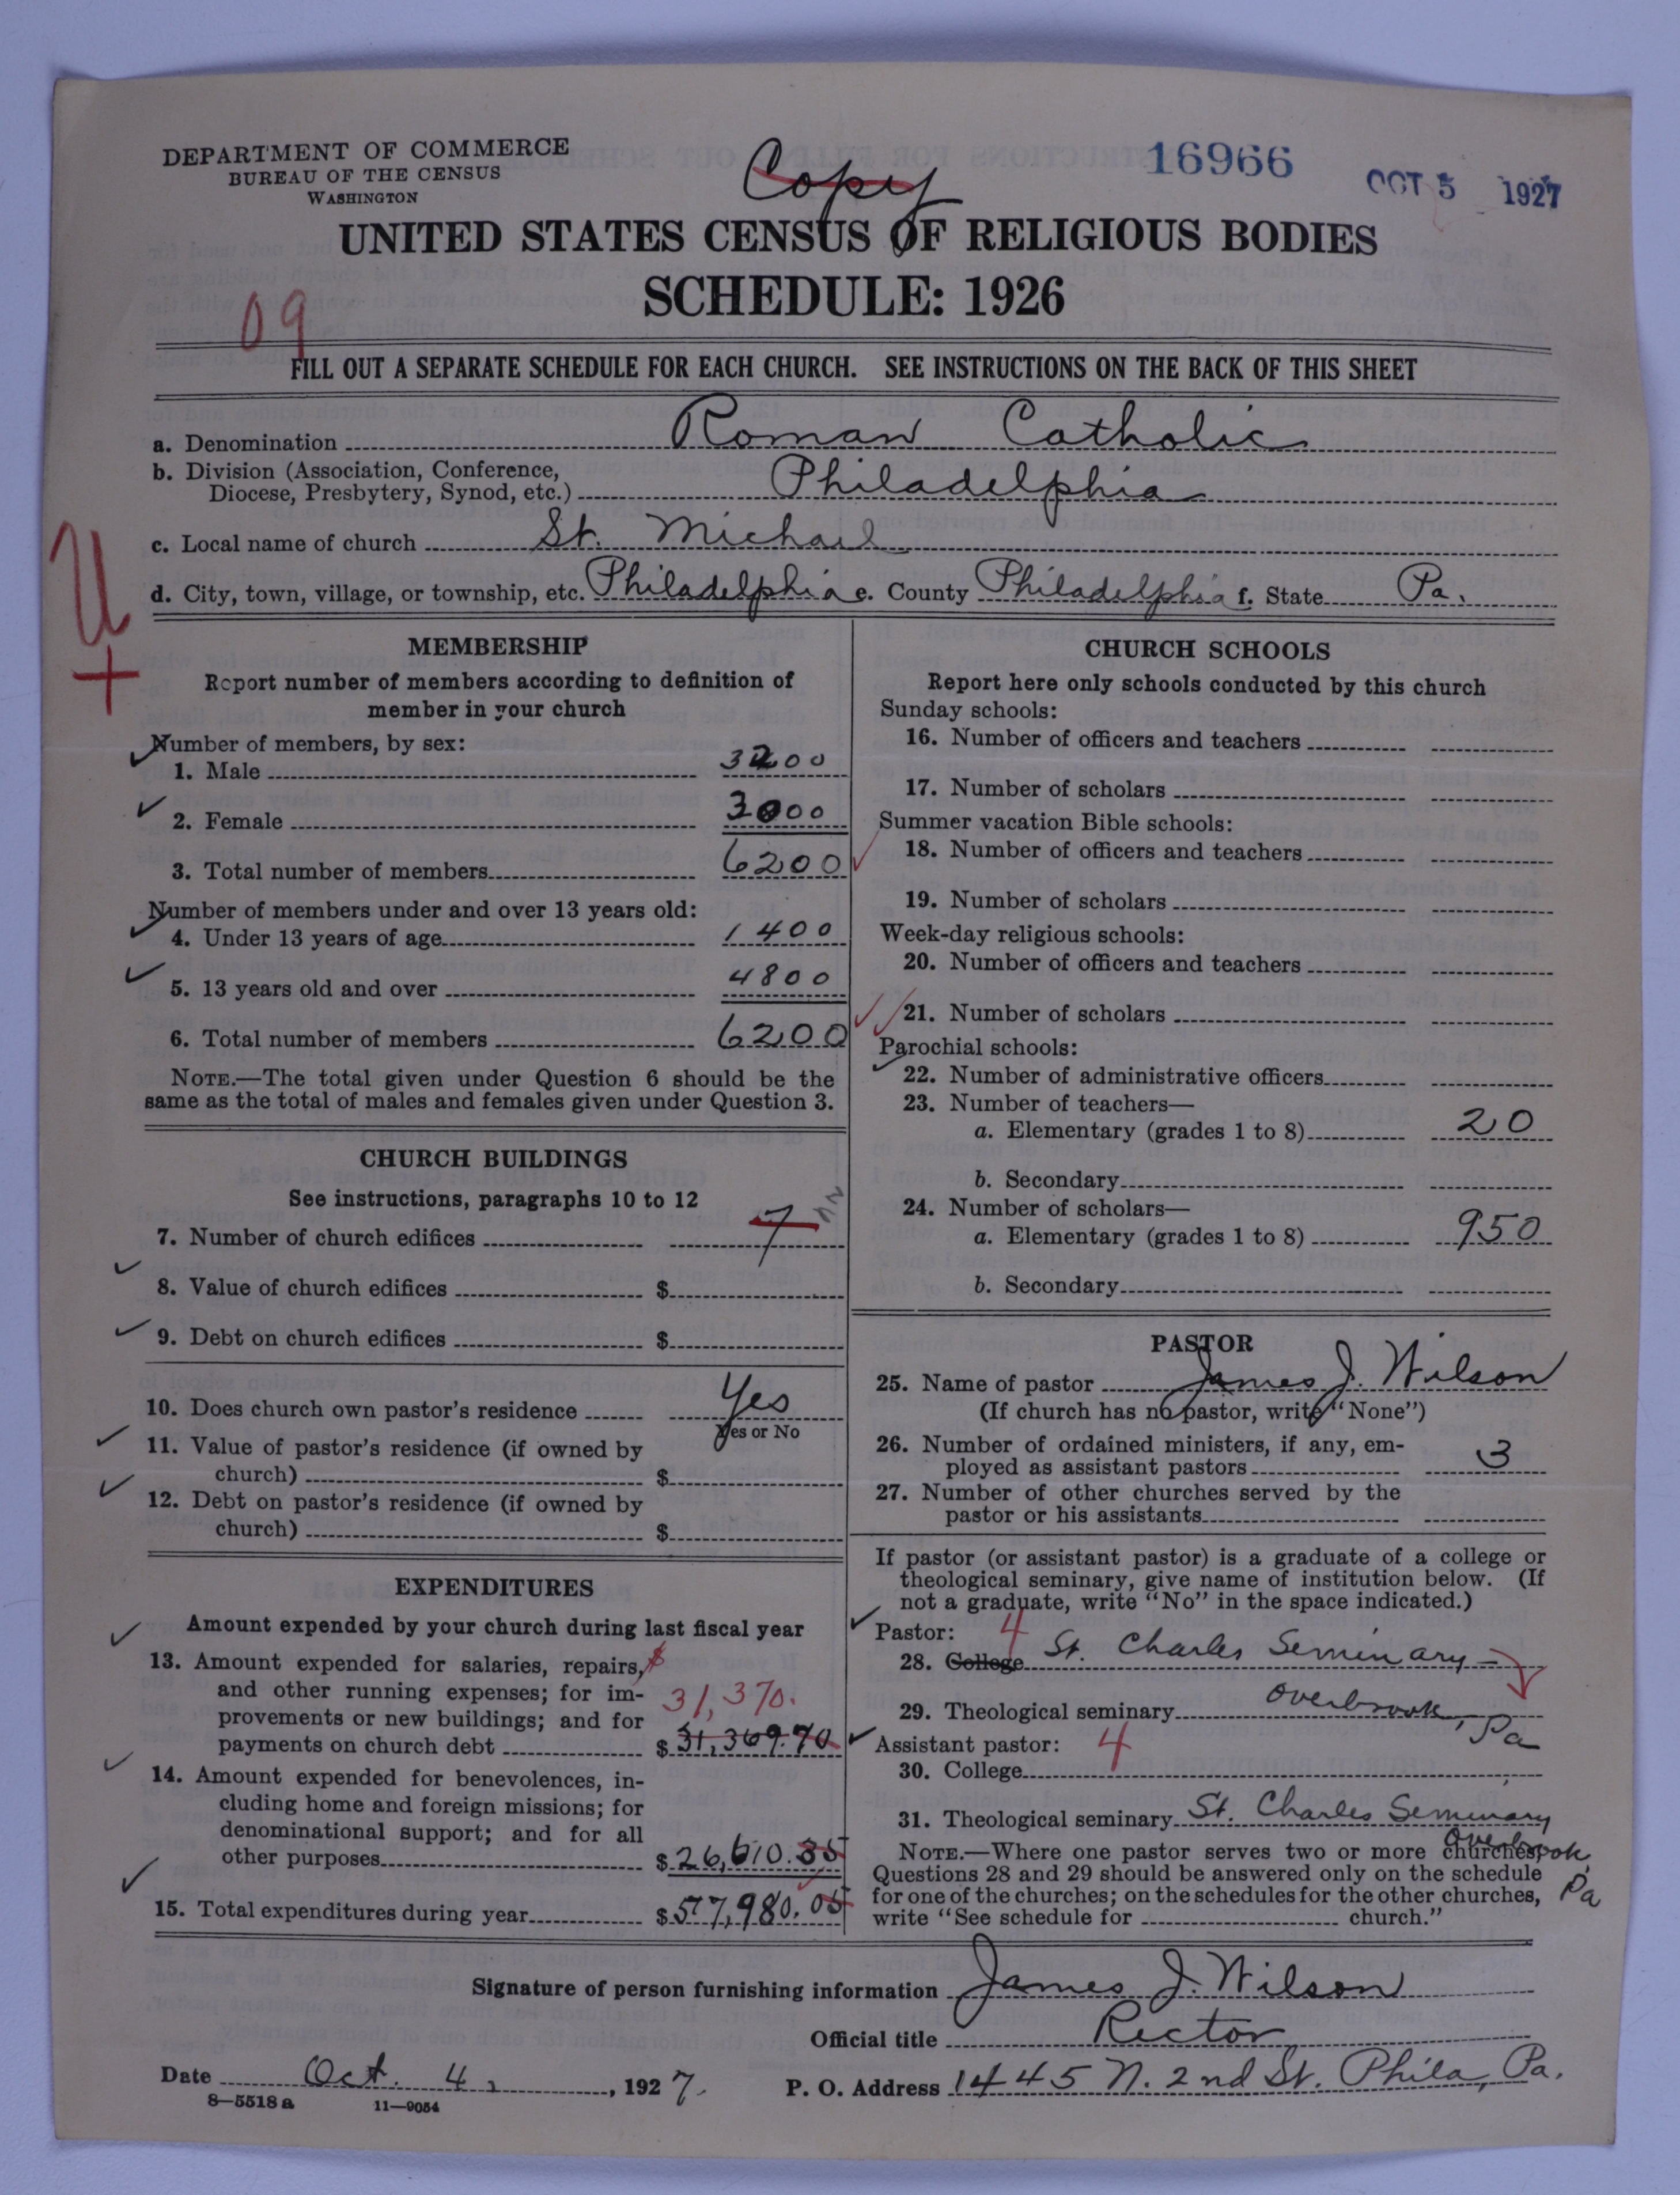 DEPARTMENT OF COMMERCE
BUREAU OF THE CENSUS
WASHINGTON
Copy
16966
OCT 5 1927
UNITED STATES CENSUS OF RELIGIOUS BODIES
SCHEDULE: 1926
09
FILL OUT A SEPARATE SCHEDULE FOR EACH CHURCH. SEE INSTRUCTIONS ON THE BACK OF THIS SHEET
a. Denomination Roman Catholic
b. Division (Association, Conference,
Diocese, Presbytery, Synod, etc.) Philadelphia
c. Local name of church St. Michael
d. City, town, village, or township, etc. Philadelphia e. County Philadelphia f. State Pa.
U
+
MEMBERSHIP
Report number of members according to definition of
member in your church
Number of members, by sex:
1. Male 3200
2. Female 3000
3. Total number of members 6200
Number of members under and over 13 years old:
4. Under 13 years of age 1400
5. 13 years old and over 4800
6. Total number of members 6200
NOTE.—The total given under Question 6 should be the
same as the total of males and females given under Question 3.
CHURCH BUILDINGS
See instructions, paragraphs 10 to 12
7. Number of church edifices 7
8. Value of church edifices $
9. Debt on church edifices $
10. Does church own pastor's residence Yes
Yes or No
11. Value of pastor's residence (if owned by
church) $
12. Debt on pastor's residence (if owned by
church) $
EXPENDITURES
Amount expended by your church during last fiscal year
13. Amount expended for salaries, repairs, $
and other running expenses; for im-
31,370.
provements or new buildings; and for
payments on church debt $ 31,369.70
14. Amount expended for benevolences, in-
cluding home and foreign missions; for
denominational support; and for all
other purposes $ 26,610.35
15. Total expenditures during year $ 57,980.05
CHURCH SCHOOLS
Report here only schools conducted by this church
Sunday schools:
16. Number of officers and teachers
17. Number of scholars
Summer vacation Bible schools:
18. Number of officers and teachers
19. Number of scholars
Week-day religious schools:
20. Number of officers and teachers
21. Number of scholars
Parochial schools:
22. Number of administrative officers
23. Number of teachers—
a. Elementary (grades 1 to 8) 20
b. Secondary
24. Number of scholars—
a. Elementary (grades 1 to 8) 950
b. Secondary
PASTOR
25. Name of pastor James J. Wilson
(If church has no pastor, write "None")
26. Number of ordained ministers, if any, em-
ployed as assistant pastors 3
27. Number of other churches served by the
pastor or his assistants
If pastor (or assistant pastor) is a graduate of a college or
theological seminary, give name of institution below. (If
not a graduate, write "No" in the space indicated.)
Pastor: 4
28. College St. Charles Seminary
29. Theological seminary Overbrook, Pa
Assistant pastor: 4
30. College
31. Theological seminary St. Charles Seminary
Overbrook, Pa
NOTE.—Where one pastor serves two or more churches,
Questions 28 and 29 should be answered only on the schedule
for one of the churches; on the schedules for the other churches,
write "See schedule for church."
Signature of person furnishing information James J. Wilson
Official title Rector
Date Oct. 4, 1927 P. O. Address 1445 N. 2nd St. Phila, Pa.
8—5518 a 11—9054